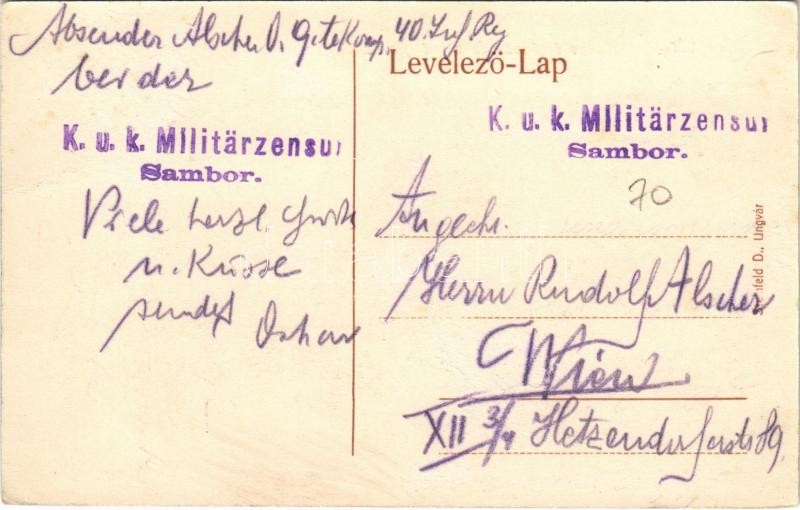 Absender Alscher O. 9. te Komp. 40. Inf Rg
bei der
Levelezö-Lap
K. u. k. Militärzensur
Sambor.
K. u. k. Militärzensur
Sambor.
70
Viele herzl. Grüße
u. Küsse
sendet Oskar
Angeh.
Herrn Rudolf Alscher
Wien
XII 3/4 Hetzendorferstr 89
nfeld D., Ungvár
darabanth